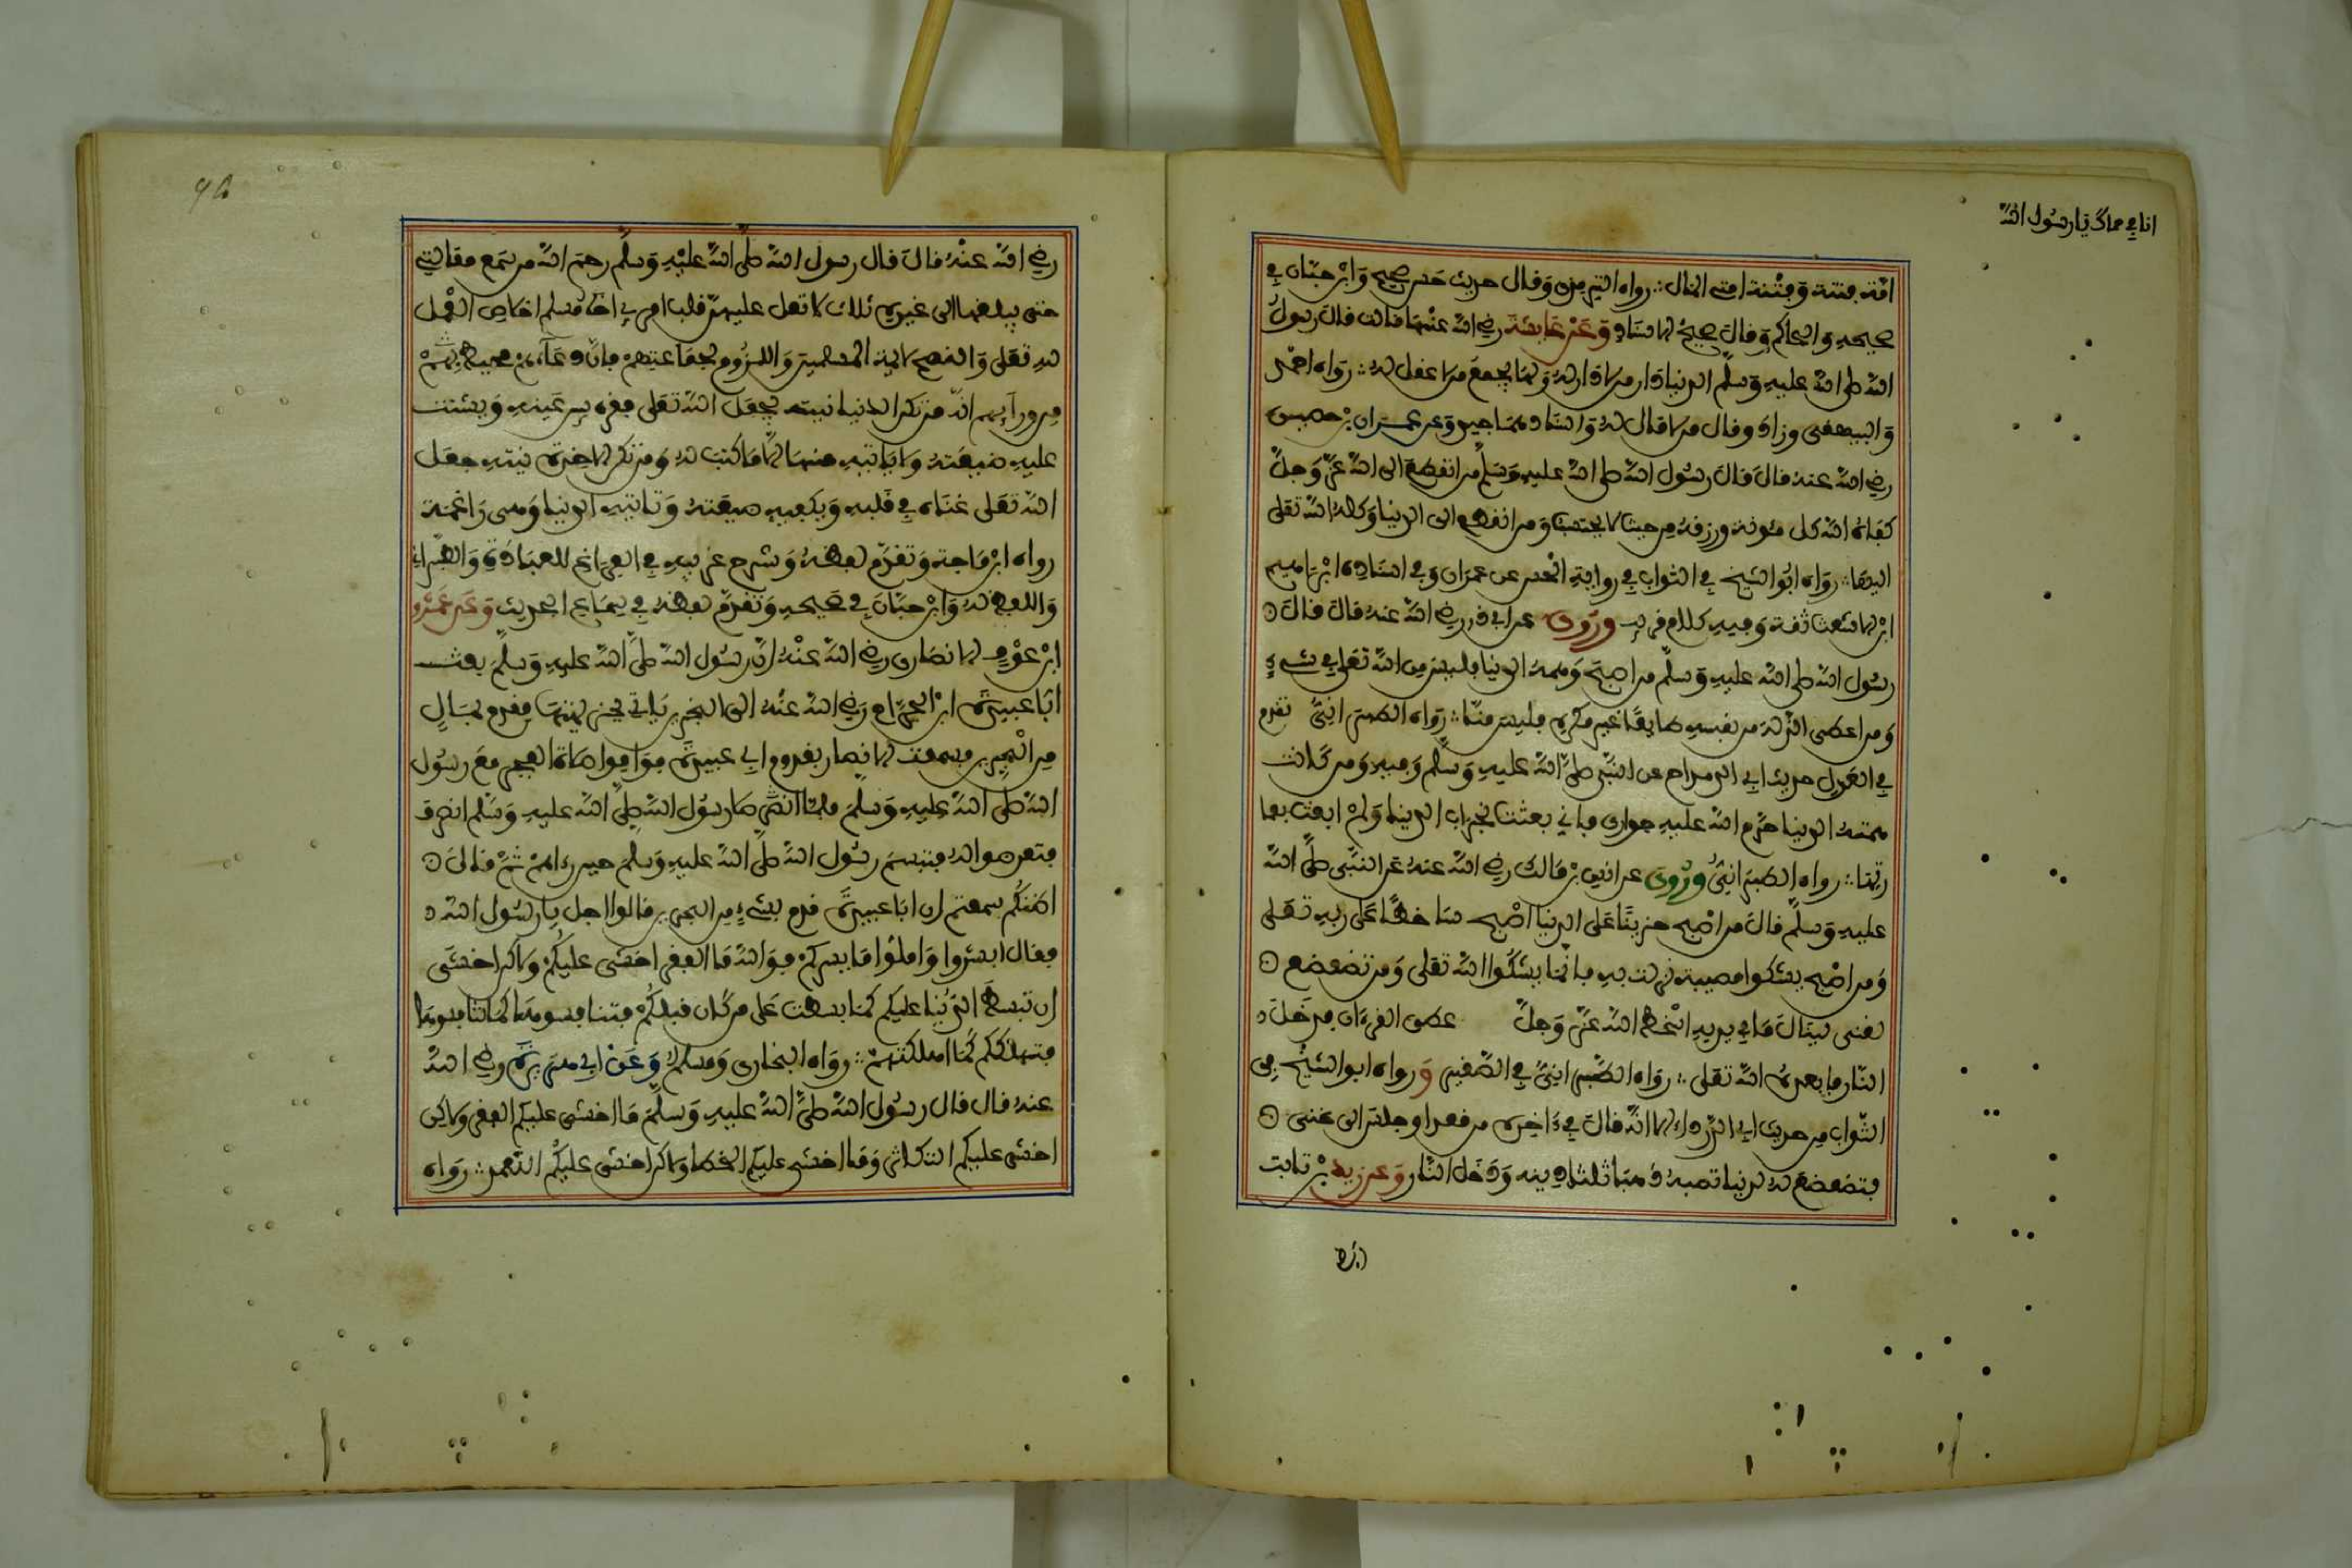 انا في حماك يا رسول الله
امة فتنة وفتنة امتي المال رواه الترمذي وقال حديث حسن صحيح وابن حبان في
صحيحه والحاكم وقال صحيح الاسناد وعن عايشة رضي الله عنها قالت قال رسول
الله صلى الله عليه وسلم الدنيا دار من لا دار له ولها يجمع من لا عقل له رواه احمد
والبيهقي وزاد ومال من لا مال له واسنادهما جيد وعن عمران بن حصين
رضي الله عنه قال قال رسول الله صلى الله عليه وسلم من انقطع الى الله عز وجل
كفاه الله كل مئونة ورزقه من حيث لا يحتسب ومن انقطع الى الدنيا وكله الله تعلى
اليها رواه ابو الشيخ في الثواب في رواية الحسن عن عمران وفي اسناده ابراهيم
ابن الاشعث ثقة وفيه كلام قريب وروي عن ابي ذر رضي الله عنه قال قال
رسول الله صلى الله عليه وسلم من اصبح وهمه الدنيا فليس من الله تعلى في شيء
ومن اعطى الذلة من نفسه طايعا غير مكره فليس منا رواه الطبراني تقدم
في العدل حديث ابي الدحداح عن النبي صلى الله عليه وسلم وفيه ومن كانت
همته الدنيا حرم الله عليه جواري فاني بعثت بخراب الدنيا ولم ابعث بعما
رتها رواه الطبراني وروي عن انس بن مالك رضي الله عنه عن النبي صلى الله
عليه وسلم قال من اصبح حزينا على الدنيا اصبح ساخطا على ربه تعلى
ومن اصبح يشكوا مصيبة نزلت به فانما يشكوا الله تعلى ومن تضعضع
لغني لينال ما في يديه اسخط الله عز وجل عطى القرءان فدخل
النار فابعده الله تعلى رواه الطبراني في الصغير ورواه ابو الشيخ في
الثواب من حديث ابي الدرداء الا انه قال في ءاخره من قعد او جلس الى غني
فتضعضع له لدنيا تصبه ذهب ثلثا دينه ودخل النار وعن زيد بن ثابت
رضي
رضي الله عنه قال قال رسول الله صلى الله عليه وسلم رحم الله من سمع مقالتي
حتى يبلغها الى غيره ثلاث لا تغل عليهن قلب امرئ مسلم اخلاص العمل
لله تعلى والنصح لايمة المسلمين واللزوم لجماعتهم فان دعاءهم محيط بهم
من ورآيهم انه من تكن الدنيا نيته يجعل الله تعلى فقره بين عينيه ويشتت
عليه ضيعته ولا ياتيه منها الا ما كتب له ومن تكن الاخرة نيته جعل
الله تعلى غناه في قلبه ويكفيه ضيعته وتاتيه الدنيا وهي راغمة
رواه ابن ماجة وتقدم لفظه وشرح غريبه في الفراغ للعبادة والطبراني
واللفظ له وابن حبان في صحيحه وتقدم لفظه في سماع الحديث وعن عمرو
ابن عوف الانصاري رضي الله عنه ان رسول الله صلى الله عليه وسلم بعث
ابا عبيدة ابن الجراح رضي الله عنه الى البحرين ياتي بجزيتها فقدم بمال
من البحرين فسمعت الانصار بقدوم ابي عبيدة فوافوا صلاة الفجر مع رسول
الله صلى الله عليه وسلم فلما انصرف رسول الله صلى الله عليه وسلم انصرف
فتعرضوا له فتبسم رسول الله صلى الله عليه وسلم حين رءاهم ثم قال
اظنكم سمعتم ان ابا عبيدة قدم بشيء من البحرين قالوا اجل يا رسول الله
فقال ابشروا واملوا ما يسركم فوالله ما الفقر اخشى عليكم ولاكن اخشى
ان تبسط الدنيا عليكم كما بسطت على من كان قبلكم فتنافسوها كما تنافسوها
فتهلككم كما اهلكتهم رواه البخاري ومسلم وعن ابي هريرة رضي الله
عنه قال قال رسول الله صلى الله عليه وسلم ما اخشى عليكم الفقر ولاكن
اخشى عليكم التكاثر وما اخشى عليكم الخطا ولاكن اخشى عليكم التعمد رواه